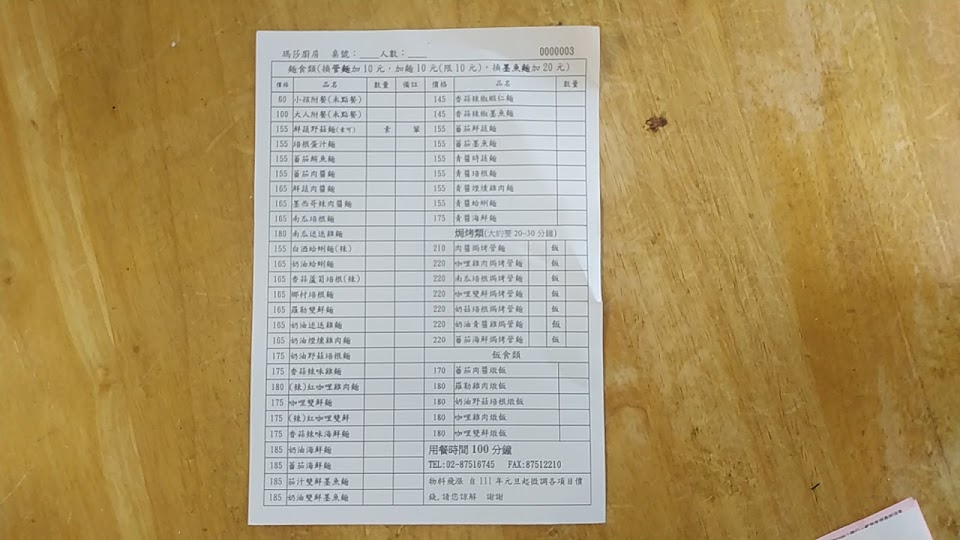 瑪莎廚房 桌號：____人數：____ 0000003
麵食類(換管麵加10元，加麵10元(限10元)，換墨魚麵加20元)
價格 品名 數量 備註
60 小孩附餐(未點餐)
100 大人附餐(未點餐)
155 鮮蔬野菇麵(素可) 素 葷
155 培根蛋汁麵
155 蕃茄鮪魚麵
155 蕃茄肉醬麵
165 鮮蔬肉醬麵
165 墨西哥辣肉醬麵
165 南瓜培根麵
180 南瓜迷迭雞麵
155 白酒蛤蜊麵(辣)
165 奶油蛤蜊麵
165 香蒜蘆筍培根(辣)
165 鄉村培根麵
165 羅勒雙鮮麵
165 奶油迷迭雞麵
165 奶油煙燻雞肉麵
175 奶油野菇培根麵
175 香蒜辣味雞麵
180 (辣)紅咖哩雞肉麵
175 咖哩雙鮮麵
175 (辣)紅咖哩雙鮮
175 香蒜辣味海鮮麵
185 奶油海鮮麵
185 蕃茄海鮮麵
185 茄汁雙鮮墨魚麵
185 奶油雙鮮墨魚麵
價格 品名 數量
145 香蒜辣椒蝦仁麵
145 香蒜辣椒墨魚麵
155 蕃茄鮮蔬麵
155 蕃茄墨魚麵
155 青醬時蔬麵
155 青醬培根麵
155 青醬煙燻雞肉麵
155 青醬蛤蜊麵
175 青醬海鮮麵
焗烤類(大約要20-30分鐘)
210 肉醬焗烤管麵 飯
220 咖哩雞肉焗烤管麵 飯
220 南瓜培根焗烤管麵 飯
220 咖哩雙鮮焗烤管麵 飯
220 奶菇培根焗烤管麵 飯
220 奶油青醬雞焗烤管麵 飯
220 蕃茄海鮮焗烤管麵 飯
飯食類
170 蕃茄肉醬燉飯
180 羅勒雞肉燉飯
180 奶油野菇培根燉飯
180 咖哩雞肉燉飯
180 咖哩雙鮮燉飯
用餐時間100分鐘
TEL:02-87516745 FAX:87512210
物料飛漲 自111年元旦起微調各項目價
錢,請您諒解 謝謝